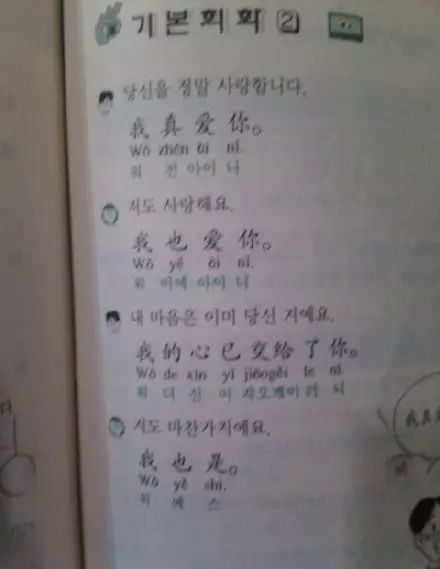 기본회화 2
당신을 정말 사랑합니다.
我真爱你。
Wǒ zhēn ài nǐ.
워 전 아이 니
저도 사랑해요.
我也爱你。
Wǒ yě ài nǐ.
워 이에 아이 니
내 마음은 이미 당신 거예요.
我的心已交给了你。
Wǒ de xīn yǐ jiāogěi le nǐ.
워 더 신 이 자오게이 러 니
저도 마찬가지예요.
我也是。
Wǒ yě shì.
워 예 스
我真